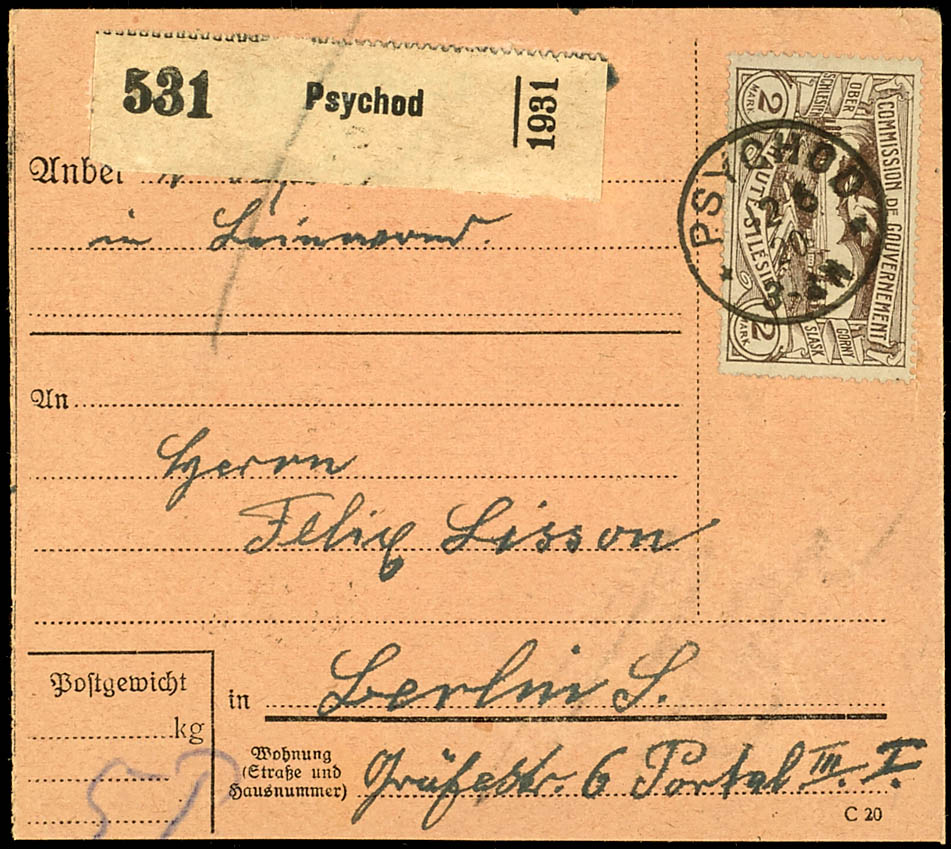 531 Psychod 1931
Anbei
in Leinwand.
An
Herrn
Felix Lisson
Postgewicht
kg
in Berlin S.
Wohnung
(Straße und
Hausnummer)
Gräfestr. 6 Portal III. I.
C 20
COMMISSION DE GOUVERNEMENT
HAUTE-SILESIE
OBER
SCHLESIEN
GORNY
SLASK
2
MARK
2
MARK
PSYCHOD
2 6
20